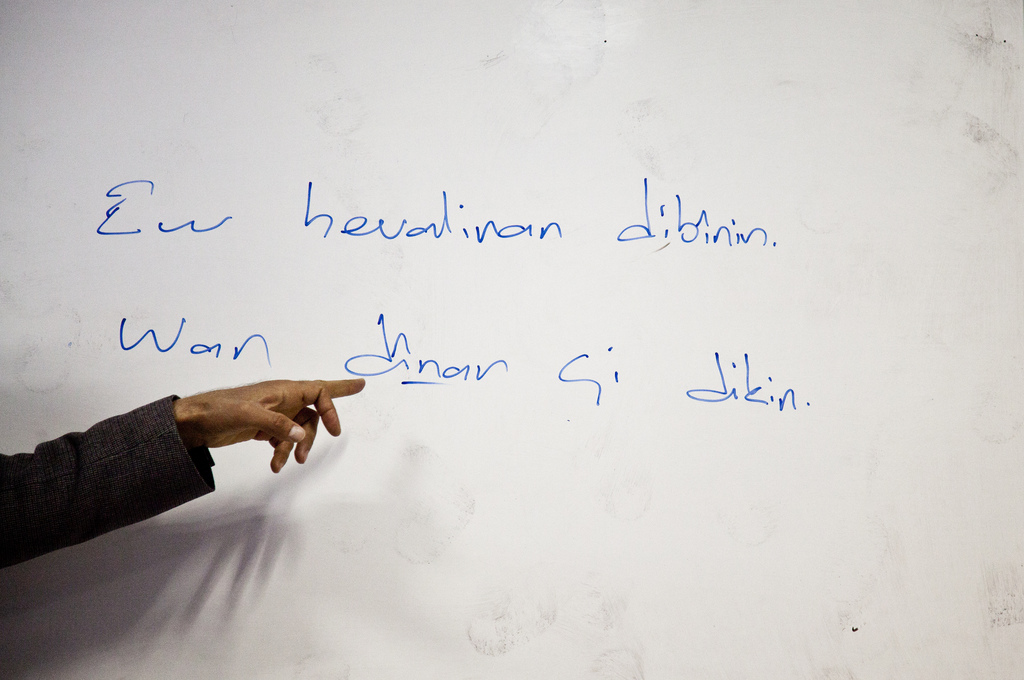 Ew hevalinan dibinin.
Wan dinan çi dikin.